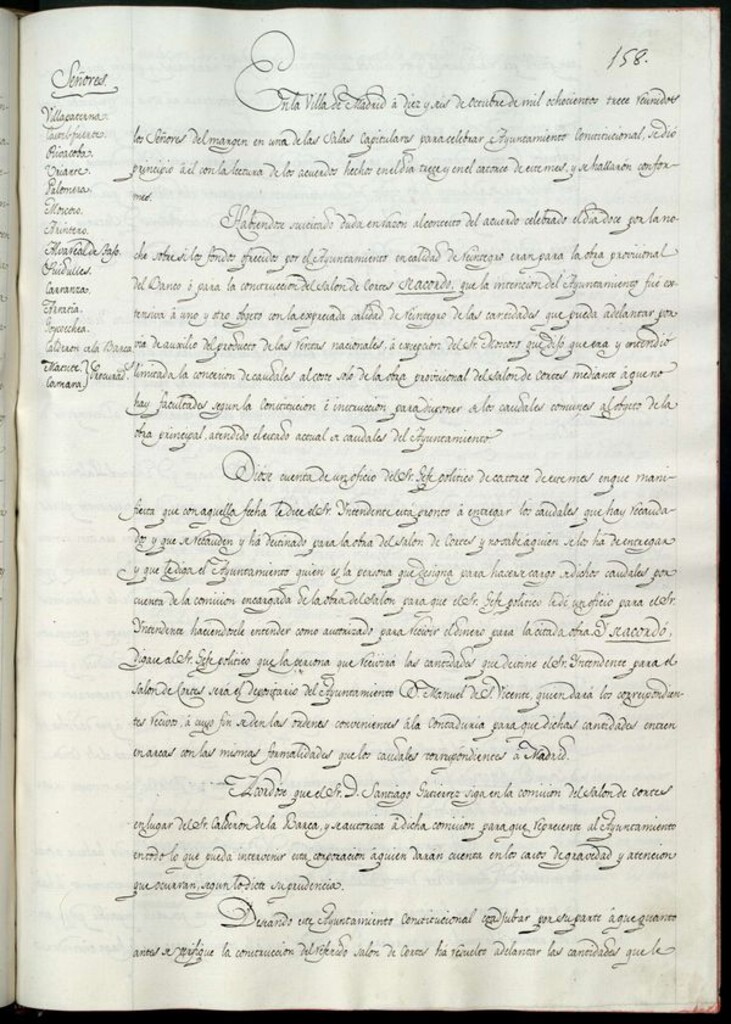 158.
Señores.
Villapaterna.
Castel-fuerte.
Rivacoba.
Uriarte.
Palomera.
Moscoso.
Arintero.
Alvareal de Baso.
Guidulles.
Carranza.
Arratia.
Goycoechea.
Calderon de la Barca
Lamara } Procurad.s
En la Villa de Madrid á diez y seis de Octubre de mil ochocientos trece reunidos
los Señores del margen en una de las Salas Capitulares para celebrar Ayuntamiento Constitucional, se dió
principio á él con la lectura de los acuerdos hechos en el dia trece y en el catorce de este mes, y se hallarón confor-
mes.
Habiendose suscitado duda en razon al contesto del acuerdo celebrado el dia doce por la no-
che sobre si los fondos ofrecidos por el Ayuntamiento en calidad de reintegro eran para la obra provisional
del Banco ó para la construccion del Salon de Cortes se acordó, que la intencion del Ayuntamiento fué ex-
tensiva á uno y otro objeto con la expresada calidad de reintegro de las cantidades que pueda adelantar por
via de auxilio del producto de las rentas nacionales, á excepcion del Sr. Moscoso que dijo que era y entendió
limitada la concesion de caudales al coste solo de la obra provisional del Salon de Cortes mediante á que no
hay facultades segun la Constitucion é instruccion para disponer de los caudales comunes al objeto de la
obra principal, atendido el estado actual de caudales del Ayuntamiento
Diose cuenta de un oficio del Sr. Gefe politico de catorce de este mes en que mani-
fiesta que con aquella fecha le dice el Sr. Yntendente esta pronto á entregar los caudales que hay recauda-
dos y que se recauden y há destinado para la obra del Salon de Cortes y no sabe á quien se los há de entregar
y que le diga el Ayuntamiento quien es la persona que designa para hacerse cargo de dichos caudales por
cuenta de la comision encargada de la obra del Salon para que el Sr. Gefe politico le dé un oficio para el Sr.
Yntendente haciendole entender como autorizado para recivir el dinero para la citada obra. Y se acordó,
Digase al Sr. Gefe politico que la persona que recivirá las cantidades que destine el Sr. Yntendente para el
Salon de Cortes será el depositario del Ayuntamiento D. Manuel de S. Vicente, quien dará los correspondien-
tes recivos, á cuyo fin se den las ordenes convenientes á la Contaduria para que dichas cantidades entren
en arcas con las mismas formalidades que los caudales correspondientes á Madrid.
Acordose que el Sr. D. Santiago Gutierrez siga en la comision del Salon de Cortes
en lugar del Sr. Calderón de la Barca, y se autoriza á dicha comision para que represente al Ayuntamiento
en todo lo que pueda intervenir esta corporacion á quien darán cuenta en los casos de gravedad y atencion
que ocurran, segun lo dicte su prudencia.
Deseando este Ayuntamiento Constitucional coadyubar por su parte á que quanto
antes se verifique la construccion del referido Salon de Cortes há resuelto adelantar las cantidades que le